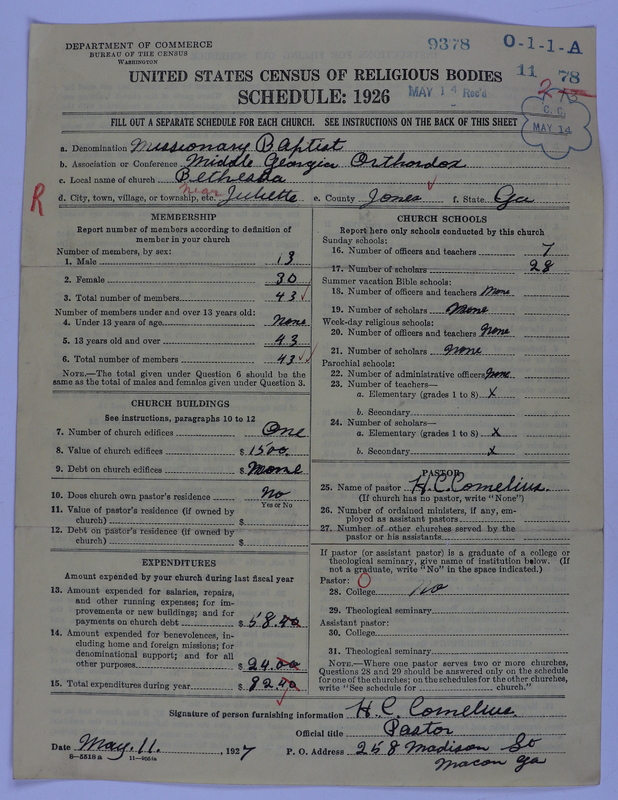 DEPARTMENT OF COMMERCE
BUREAU OF THE CENSUS
WASHINGTON
9378
O-1-1-A
11 78
MAY 14 Rec'd
C. C.
MAY 14
UNITED STATES CENSUS OF RELIGIOUS BODIES
SCHEDULE: 1926
FILL OUT A SEPARATE SCHEDULE FOR EACH CHURCH. SEE INSTRUCTIONS ON THE BACK OF THIS SHEET
a. Denomination Missionary Baptist
b. Association or Conference Middle Georgia Orthordox
c. Local name of church Bethesda
R
d. City, town, village, or township, etc. near Juliette e. County Jones f. State Ga
MEMBERSHIP
Report number of members according to definition of
member in your church
Number of members, by sex:
1. Male 13
2. Female 30
3. Total number of members 43
Number of members under and over 13 years old:
4. Under 13 years of age none
5. 13 years old and over 43
6. Total number of members 43
NOTE.—The total given under Question 6 should be
same as the total of males and females given under Question 3.
CHURCH BUILDINGS
See instructions, paragraphs 10 to 12
7. Number of church edifices One
8. Value of church edifices $ 1500.
9. Debt on church edifices $ None
10. Does church own pastor's residence No
Yes or No
11. Value of pastor's residence (if owned by
church) $
12. Debt on pastor's residence (if owned by
church) $
EXPENDITURES
Amount expended by your church during last fiscal year
13. Amount expended for salaries, repairs,
and other running expenses; for im-
provements or new buildings; and for
payments on church debt $ 58.40
14. Amount expended for benevolences, in-
cluding home and foreign missions; for
denominational support; and for all
other purposes $ 24.00
15. Total expenditures during year $ 82.40
CHURCH SCHOOLS
Report here only schools conducted by this church
Sunday schools:
16. Number of officers and teachers 7
17. Number of scholars 28
Summer vacation Bible schools:
18. Number of officers and teachers None
19. Number of scholars None
Week-day religious schools:
20. Number of officers and teachers None
21. Number of scholars none
Parochial schools:
22. Number of administrative officers None
23. Number of teachers—
a. Elementary (grades 1 to 8) x
b. Secondary
24. Number of scholars—
a. Elementary (grades 1 to 8) x
b. Secondary x
PASTOR
25. Name of pastor H. C. Cornelius.
(If church has no pastor, write "None")
26. Number of ordained ministers, if any, em-
ployed as assistant pastors
27. Number of other churches served by the
pastor or his assistants
If pastor (or assistant pastor) is a graduate of a college or
theological seminary, give name of institution below. (If
not a graduate, write "No" in the space indicated.)
Pastor: O
28. College no
29. Theological seminary
Assistant pastor:
30. College
31. Theological seminary
NOTE.—Where one pastor serves two or more churches,
Questions 28 and 29 should be answered only on the schedule
for one of the churches; on the schedules for the other churches,
write "See schedule for church."
Signature of person furnishing information H. C. Cornelius.
Official title Pastor
Date May. 11. , 1927 P. O. Address 258 Madison St
Macon Ga
8—5518 a